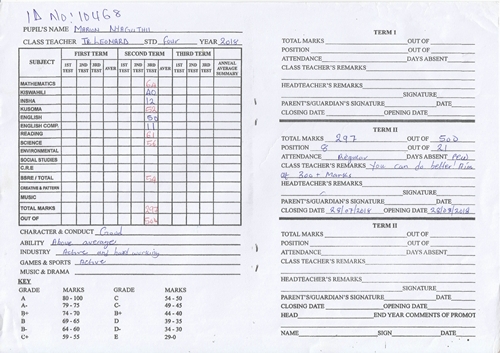 ID No: 10468
PUPIL'S NAME
CLASS TEACHER Tr. Leonard STD four YEAR 2018
SUBJECT FIRST TERM SECOND TERM THIRD TERM
1ST TEST 2ND TEST 3RD TEST AVER 1ST TEST 2ND TEST 3RD TEST AVER 1ST TEST 2ND TEST 3RD TEST AVER ANNUAL AVERAGE SUMMARY
MATHEMATICS
KISWAHILI 40
INSHA 12
KUSOMA 52
ENGLISH 50
ENGLISH COMP. 11
READING 61
SCIENCE 56
ENVIRONMENTAL
SOCIAL STUDIES
C.R.E
SSRE / TOTAL 54
CREATIVE & PATTERN
MUSIC
TOTAL MARKS 297
OUT OF 500
CHARACTER & CONDUCT Good
ABILITY Above average
INDUSTRY Active and hard working
GAMES & SPORTS Active
MUSIC & DRAMA
KEY
GRADE MARKS GRADE MARKS
A 80 - 100 C 54 - 50
A- 79 - 75 C- 49 - 45
B+ 74 - 70 B+ 44 - 40
B 69 - 65 D 39 - 35
B- 64 - 60 D- 34 - 30
C+ 59 - 55 E 29-0
TERM I
TOTAL MARKS OUT OF
POSITION OUT OF
ATTENDANCE DAYS ABSENT
CLASS TEACHER'S REMARKS
HEADTEACHER'S REMARKS
SIGNATURE
PARENT'S/GUARDIAN'S SIGNATURE DATE
CLOSING DATE OPENING DATE
TERM II
TOTAL MARKS 297 OUT OF 500
POSITION 8 OUT OF 21
ATTENDANCE Regular DAYS ABSENT Few
CLASS TEACHER'S REMARKS You can do better Aim
at 300+ Marks
HEADTEACHER'S REMARKS
SIGNATURE
PARENT'S/GUARDIAN'S SIGNATURE DATE
CLOSING DATE 28/07/2018 OPENING DATE 28/08/2018
TERM II
TOTAL MARKS OUT OF
POSITION OUT OF
ATTENDANCE DAYS ABSENT
CLASS TEACHER'S REMARKS
HEADTEACHER'S REMARKS
SIGNATURE
PARENT'S/GUARDIAN'S SIGNATURE DATE
CLOSING DATE OPENING DATE
HEAD END YEAR COMMENTS OF PROMOT
NAME SIGN DATE